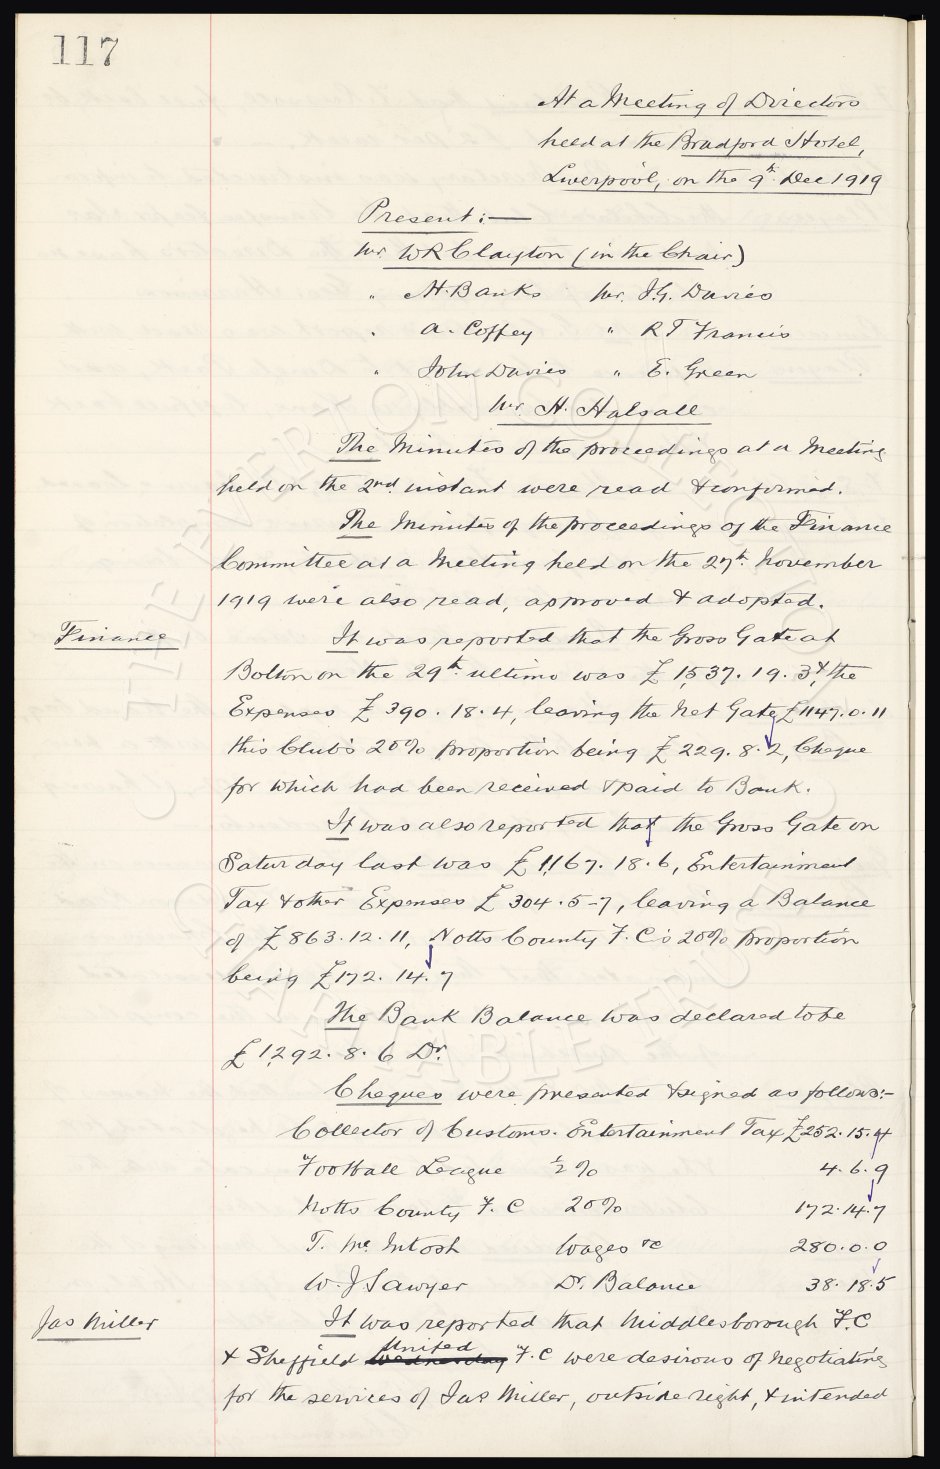 117
At a Meeting of Directors
held at the Bradford Hotel,
Liverpool, on the 9th. Dec 1919
Present:—
Mr. W R Clayton (in the Chair)
" H. Banks Mr. J. G. Davies
" A. Coffey " R T Francis
" John Davies " E. Green
Mr. H. Halsall
The Minutes of the proceedings at a Meeting
held on the 2nd. instant were read & confirmed.
The Minutes of the proceedings of the Finance
Committee at a Meeting held on the 27th. November
1919 were also read, approved & adopted.
Finance
It was reported that the Gross Gate at
Bolton on the 29th. ultimo was £1,537. 19. 3, the
Expenses £390. 18. 4, leaving the Net Gate £1147. 0. 11
this Club's 20% proportion being £229. 8. 2, Cheque
for which had been received & paid to Bank.
It was also reported that the Gross Gate on
Saturday last was £1,167. 18. 6, Entertainment
Tax & other Expenses £304. 5 - 7, leaving a Balance
of £863. 12. 11, Notts County F. C's 20% proportion
being £172. 14. 7
The Bank Balance was declared to be
£1,292. 8. 6 Dr.
Cheques were presented & signed as follows:-
Collector of Customs. Entertainment Tax £252. 15. 4
Football League ½% 4. 6. 9
Notts County F. C 20% 172. 14. 7
T. McIntosh Wages &c 280. 0. 0
W. J Sawyer Dr. Balance 38. 18. 5
Jas Miller
It was reported that Middlesborough F.C
& Sheffield Wednesday United F.C were desirous of negotiating
for the services of Jas Miller, outside right, & intended